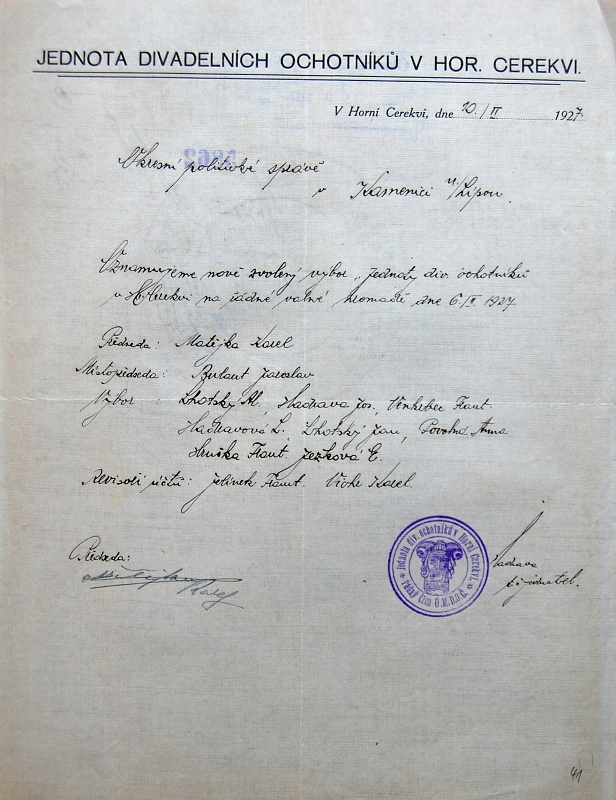 JEDNOTA DIVADELNÍCH OCHOTNÍKŮ V HOR. CEREKVI.
V Horní Cerekvi, dne 20./II 1927.
Okresní politické správě
v Kamenici n/Lipou.
Oznamujeme nově zvolený výbor „jednoty div. ochotníků
v H. Cerekvi na řádné valné hromadě dne 6./II 1927
Předseda: Matějka Karel
Místopředseda: Jaroslav
Výbor: Lhotský Al., Hadrava Jos., Frant.
Hadravová L., Lhotský Jan, Povolná Anna
Hruška Frant. Ježková E.
Revisoři účtů: Jelínek Frant. Karel
Předseda:
Matějka Karel
Hadrava
jednatel.
Jednota div. ochotníků v Horní Cerekvi.
řádný člen Ú.M.D.O.Č.
41